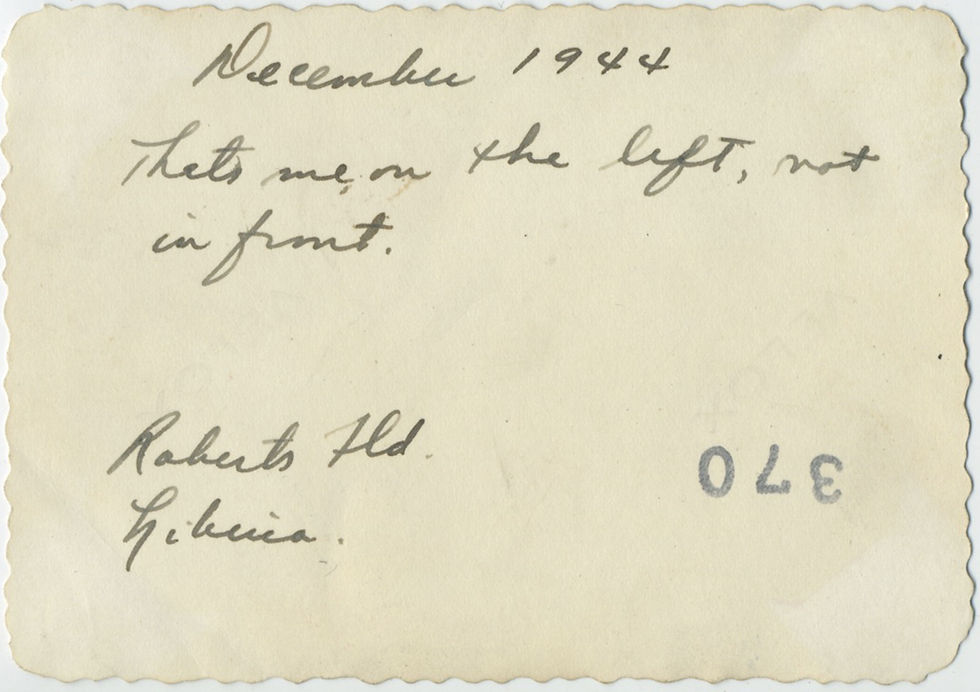 December 1944
Thats me, on the left, not
in front.
Roberts Fld.
Liberia.
370